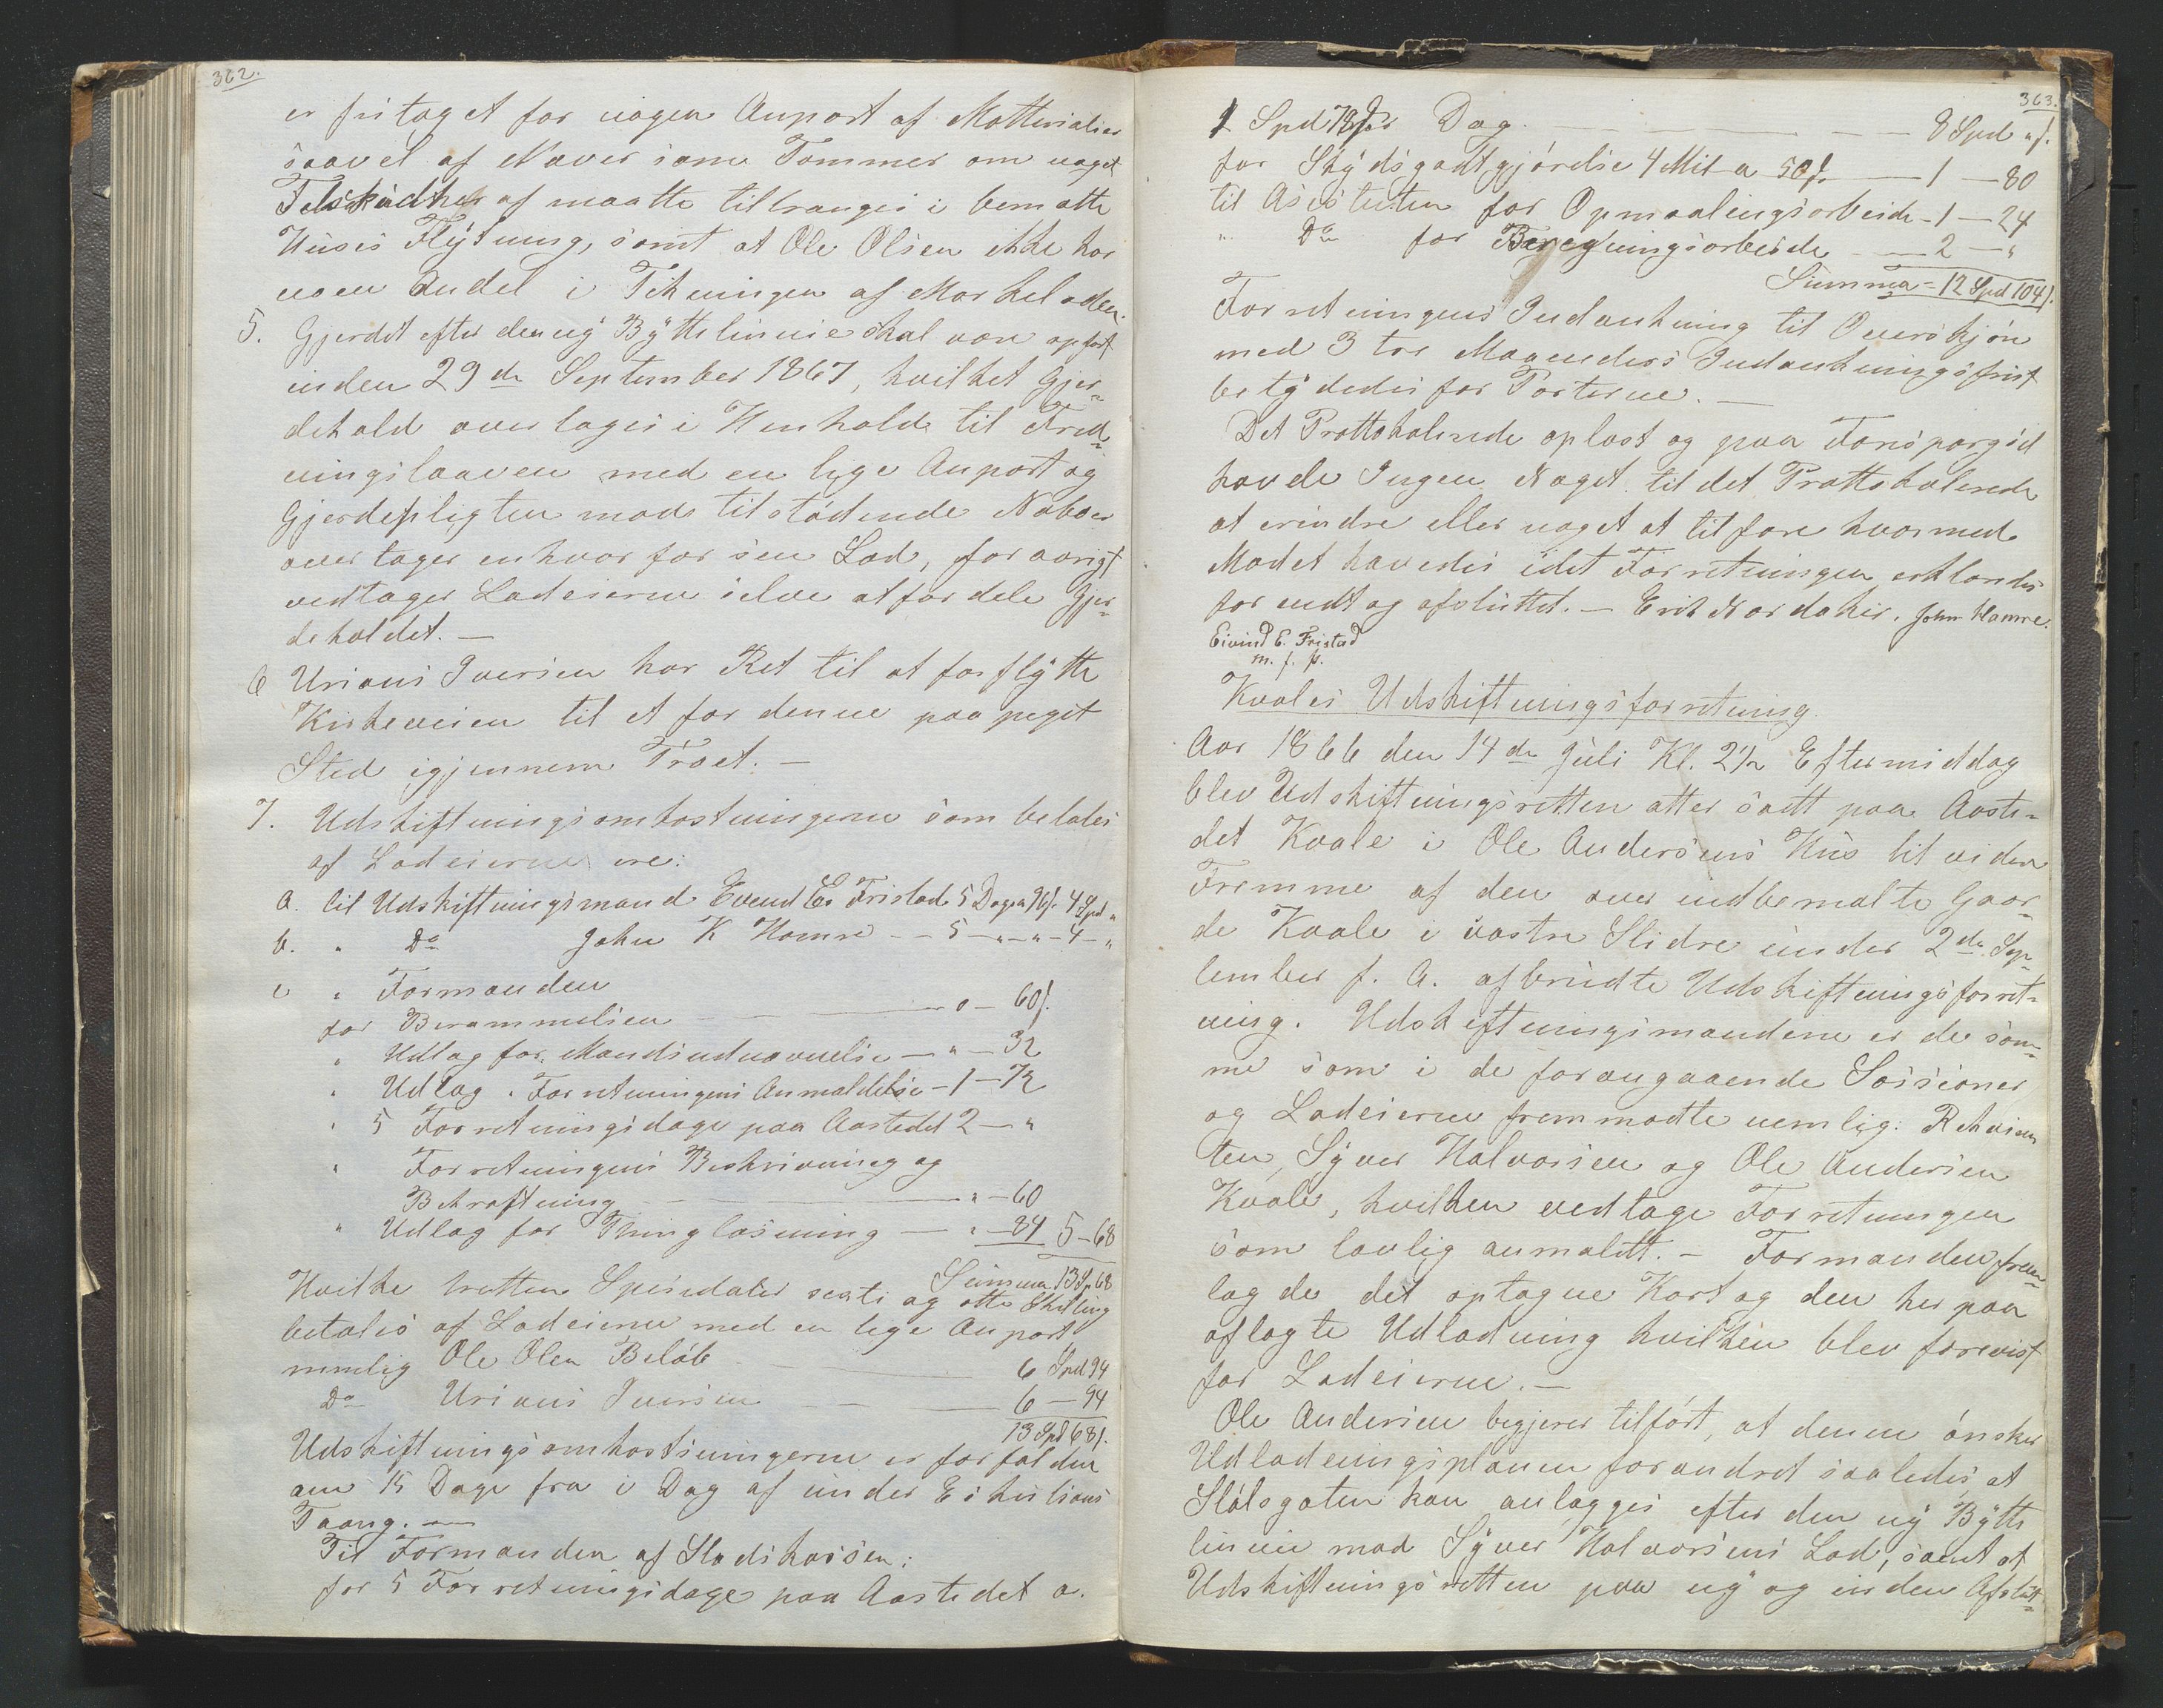 362.
er fritaget for nogen Anpart af Matterialier
saavel af Næver som Tømmer om noget
deraf maatte tiltrænges i bemælte
Huses Flytning, samt at Ole Olsen ikke har
nogen Andel i Tækningen af Markeladen.
5. Gjerdet efter den ny Byttelinnie skal være opført
inden 29de September 1867, hvilket Gjer-
dehold overtages i Henhold til Fred-
ningslaaven med en lige Anpart og
Gjerdepligten mod tilstødende Naboer
overtager enhver for sin Lod, for øvrigt
vedtager Lodeierne selve at fordele Gjer-
deholdet. —
6 Urians Iversen har Ret til at forflytte
Kirkeveien til et for denne paapeget
Sted igjennem Træet. —
7. Udskiftningsomkostningerne som betales
af Lodeierne ere:
a. til Udskiftningsmand Evend Es Fristad 5 Dage a 96 s. 4 Spd "
b. " Do John K Hamre — 5 - " - " - 4 - "
c " Formanden
for Berammelsen — 0 — 60 s.
" Udlag for Mandsudnævnelse — " — 32
" Udlag " Forretningens Anmældelse — 1 — 72
" 5 Forretningsdage paa Aastedet 2 — "
" Forretningens Beskrivning og
Bekræftning — " — 60
" Udlag for Thinglæsning — " — 84 5 — 68
Summa 13 Sp 68
Hvilke tretten Speciedaler sexti og otte Skilling
betales af Lodeierne med en lige Anpart
nemlig Ole Olsen Beløb — 6 Spd 94
Do Urians Iversen — 6 — 94
13 Spd 68 s.
Udskiftningsomkostningerne er forfalden
om 15 Dage fra i Dag af under Exikutions
Tvang. —
Til Formanden af Stadskassen:
for 5 Forretningsdage paa Aastedet a.
363.
1 Spd 72 s pr Dag — 8 Spd " s.
for Skydsgodtgjørelse 4 Mil a 50 s. — 1 — 80
til Assistenten for Opmaalingsarbeide — 1 — 24
" Do for Beregningsarbeide — 2 — "
Summa = 12 Spd 104 s.
Forretningens Indankning til Overskjøn
med 3 tre Maaneders Indankningsfrist
betydedes for Parterne. —
Det Prottokolerede oplæst og paa Forespørgsel
havde Ingen Noget til det Prottokolerede
at erindre eller noget at tilføre hvormed
Mødet hævedes idet Forretningen erklæredes
for endt og afsluttet. — Erik Nordaker. John Hamre.
Eivind E. Fristad
m. f. p.
Kvales Udskiftningsforretning
Aar 1866 den 14de Juli Kl. 2 1/2 Eftermiddag
blev Udskiftningsretten atter sadt paa Aaste-
det Kvale i Ole Andersens Hus til videre
Fremme af den over endbemælte Gaar-
de Kvale i vøstre Slidre under 2de Sep-
tember f. A. afbrudte Udskiftningsforret-
ning. Udskiftningsmændene er de sam-
me som i de foregaaende Sessioner
og Lodeierne fremmødte nemlig: Rekviren-
ten, Syver Halvorsen og Ole Andersen
Kvale, hvilken vedtage Forretningen
som lovlig anmældt. — Formanden frem-
lagde det optagne Kart og den her paa
aflagte Udlodning hvilken blev forevist
for Lodeierne. —
Ole Andersen begjerer tilført, at denne ønsker
Udlodningsplanen forandret saaledes, at
Stølsgaten kan anlægges efter den ny Bytte
linnie mod Syver Halvorsens Lod, samt at
Udskiftningsretten paa ny og inden Afslut-